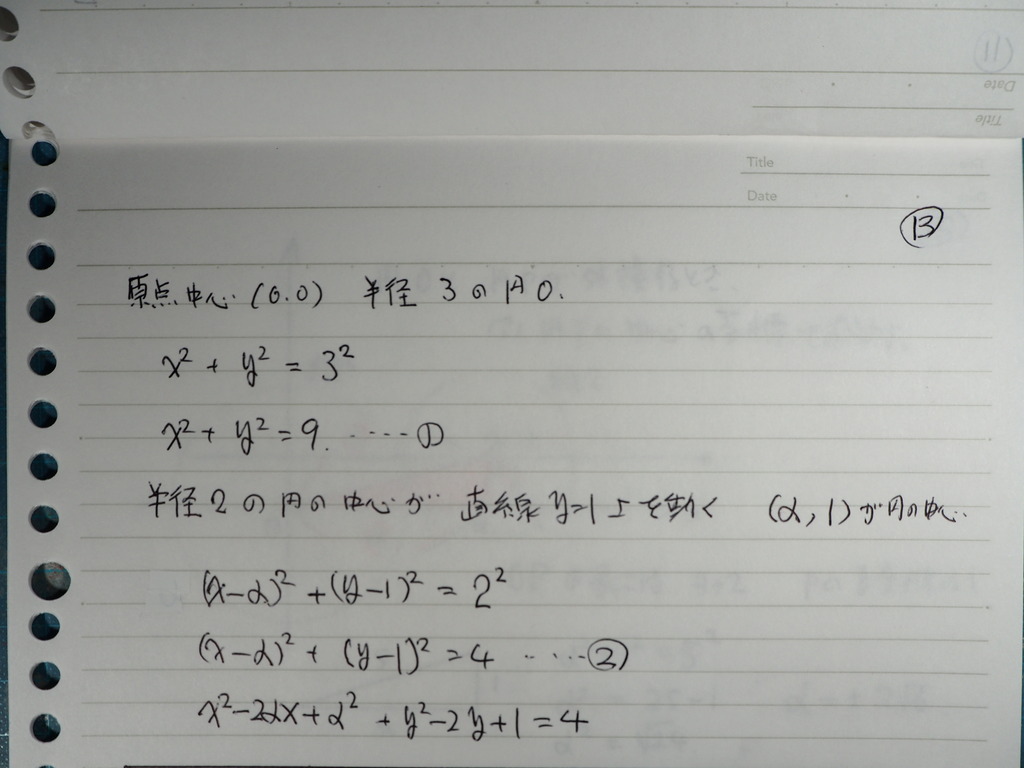 ⑪
Date
Title
Title
Date
⑬
原点中心 (0.0) 半径 3 の円O.
x² + y² = 3²
x² + y² = 9. ····· ①
半径 2 の 円の 中心が 直線 y=1上を動く (α, 1) が円の中心.
(x-α)² + (y-1)² = 2²
(x-α)² + (y-1)² = 4 ····· ②
x²-2αx+α² + y²-2y+1 = 4